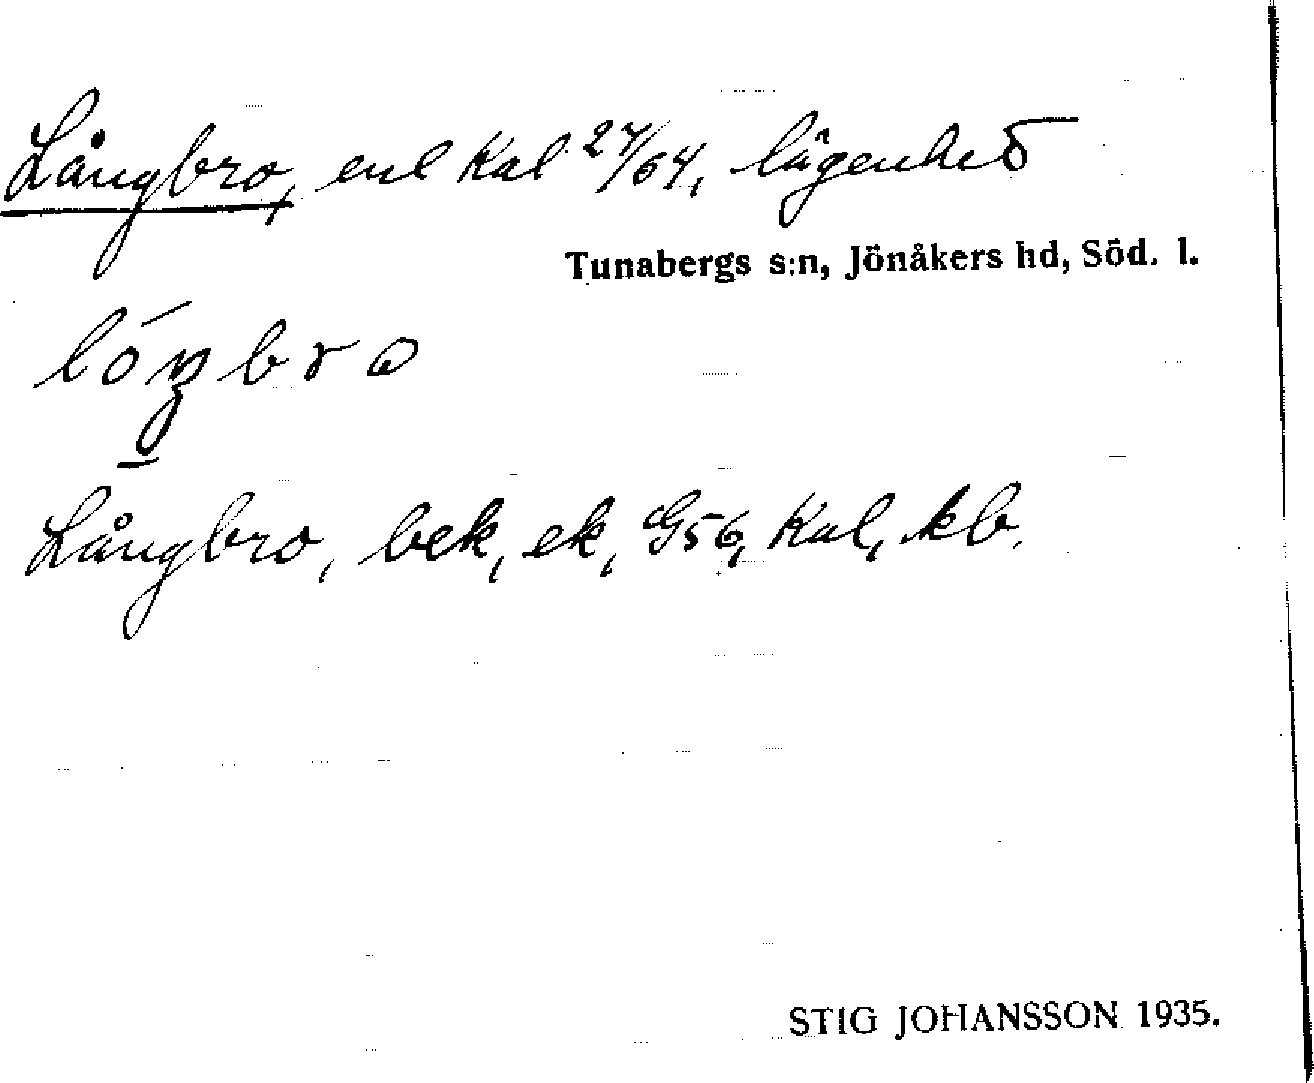 Långbro, enl Kal 27/64, lägenhet
Tunabergs s:n, Jönåkers hd, Söd. l.
Långbro, bek, ek, G56, Kal, kb.
STIG JOHANSSON 1935.